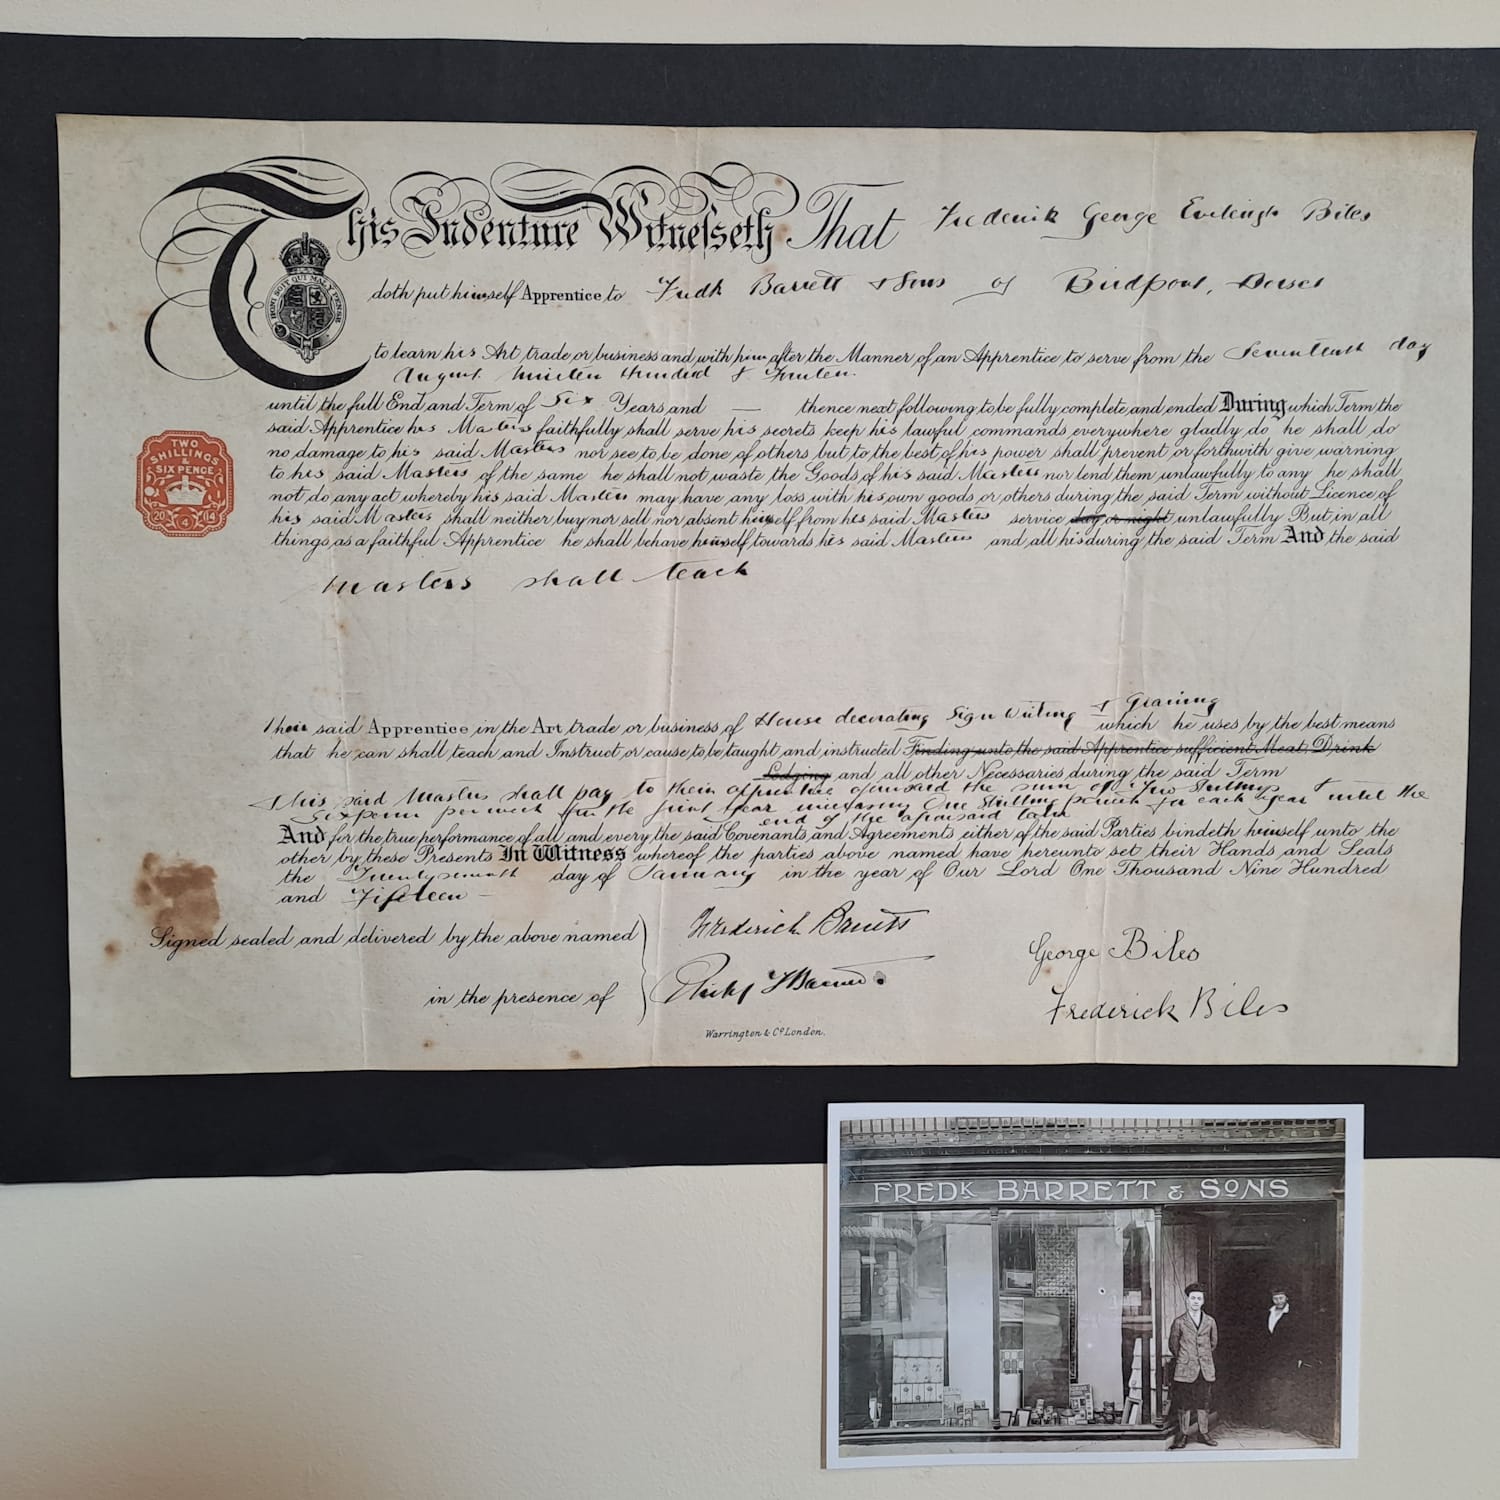 This Indenture Witnesseth That Frederick George Eveleigh Biles
HONI SOIT QUI MAL Y PENSE
doth put himself Apprentice to Fredk Barrett & Sons of Bridport, Dorset
to learn his Art trade or business and with him after the Manner of an Apprentice to serve from the Seventeenth day
August Nineteen Hundred & Fourteen.
until the full End and Term of Six Years and — thence next following to be fully complete and ended During which Term the
said Apprentice his Masters faithfully shall serve his secrets keep his lawful commands everywhere gladly do he shall do
no damage to his said Masters nor see to be done of others but to the best of his power shall prevent or forthwith give warning
to his said Masters of the same he shall not waste the Goods of his said Masters nor lend them unlawfully to any he shall
not do any act whereby his said Masters may have any loss with his own goods or others during the said Term without Licence of
his said Masters shall neither buy nor sell nor absent himself from his said Masters service day or night unlawfully But in all
things as a faithful Apprentice he shall behave himself towards his said Masters and all his during the said Term And the said
TWO
SHILLINGS
&
SIX PENCE
20 4 14
Masters shall teach
Their said Apprentice in the Art trade or business of House decorating Sign Writing & Graining which he uses by the best means
that he can shall teach and Instruct or cause to be taught and instructed Finding unto the said Apprentice sufficient Meat, Drink
Lodging and all other Necessaries during the said Term
This said Masters shall pay to their apprentice aforesaid the sum of Two Shillings
Sixpence per week for the first year increasing One Shilling per week for each year until the
end of the aforesaid term
And for the true performance of all and every the said Covenants and Agreements either of the said Parties bindeth himself unto the
other by these Presents In Witness whereof the parties above named have hereunto set their Hands and Seals
the day of January in the year of Our Lord One Thousand Nine Hundred
and Fifteen
Signed sealed and delivered by the above named
in the presence of
Frederick Barrett
George Biles
Frederick Biles
Warrington & Co London.
FREDK BARRETT & SONS